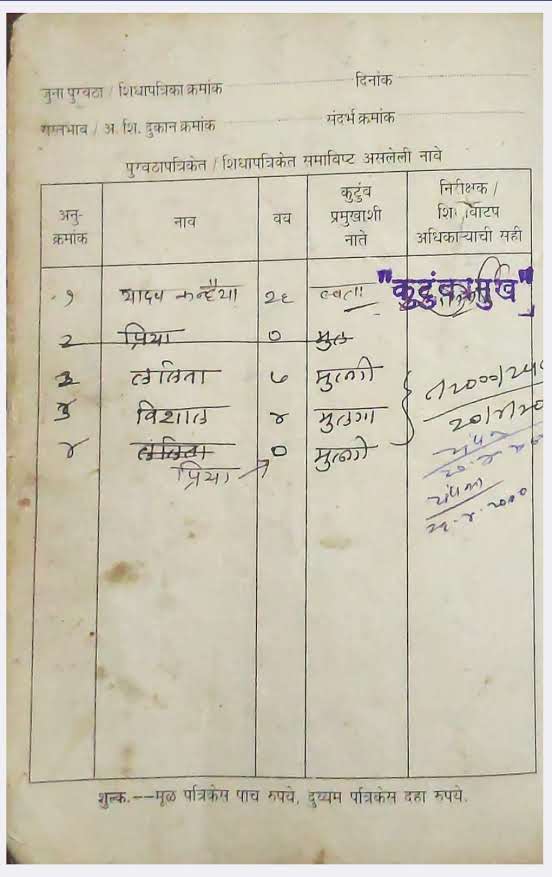 जुना पुरवठा / शिधापत्रिका क्रमांक दिनांक
रास्तभाव / अ. शि. दुकान क्रमांक संदर्भ क्रमांक
पुरवठापत्रिकेत / शिधापत्रिकेत समाविष्ट असलेली नावे
अनु-क्रमांक नाव वय कुटुंब प्रमुखाशी नाते निरीक्षक / शिधावाटप अधिकाऱ्याची सही
१ यादव कन्हैया २६ स्वतः "कुटुंब प्रमुख"
२ प्रिया ० मुल
२ ललिता ७ मुलगी
३ विशाल ४ मुलगा
४ ललिता ० मुलगी
प्रिया
शुल्क.--मूळ पत्रिकेस पाच रुपये, दुय्यम पत्रिकेस दहा रुपये.